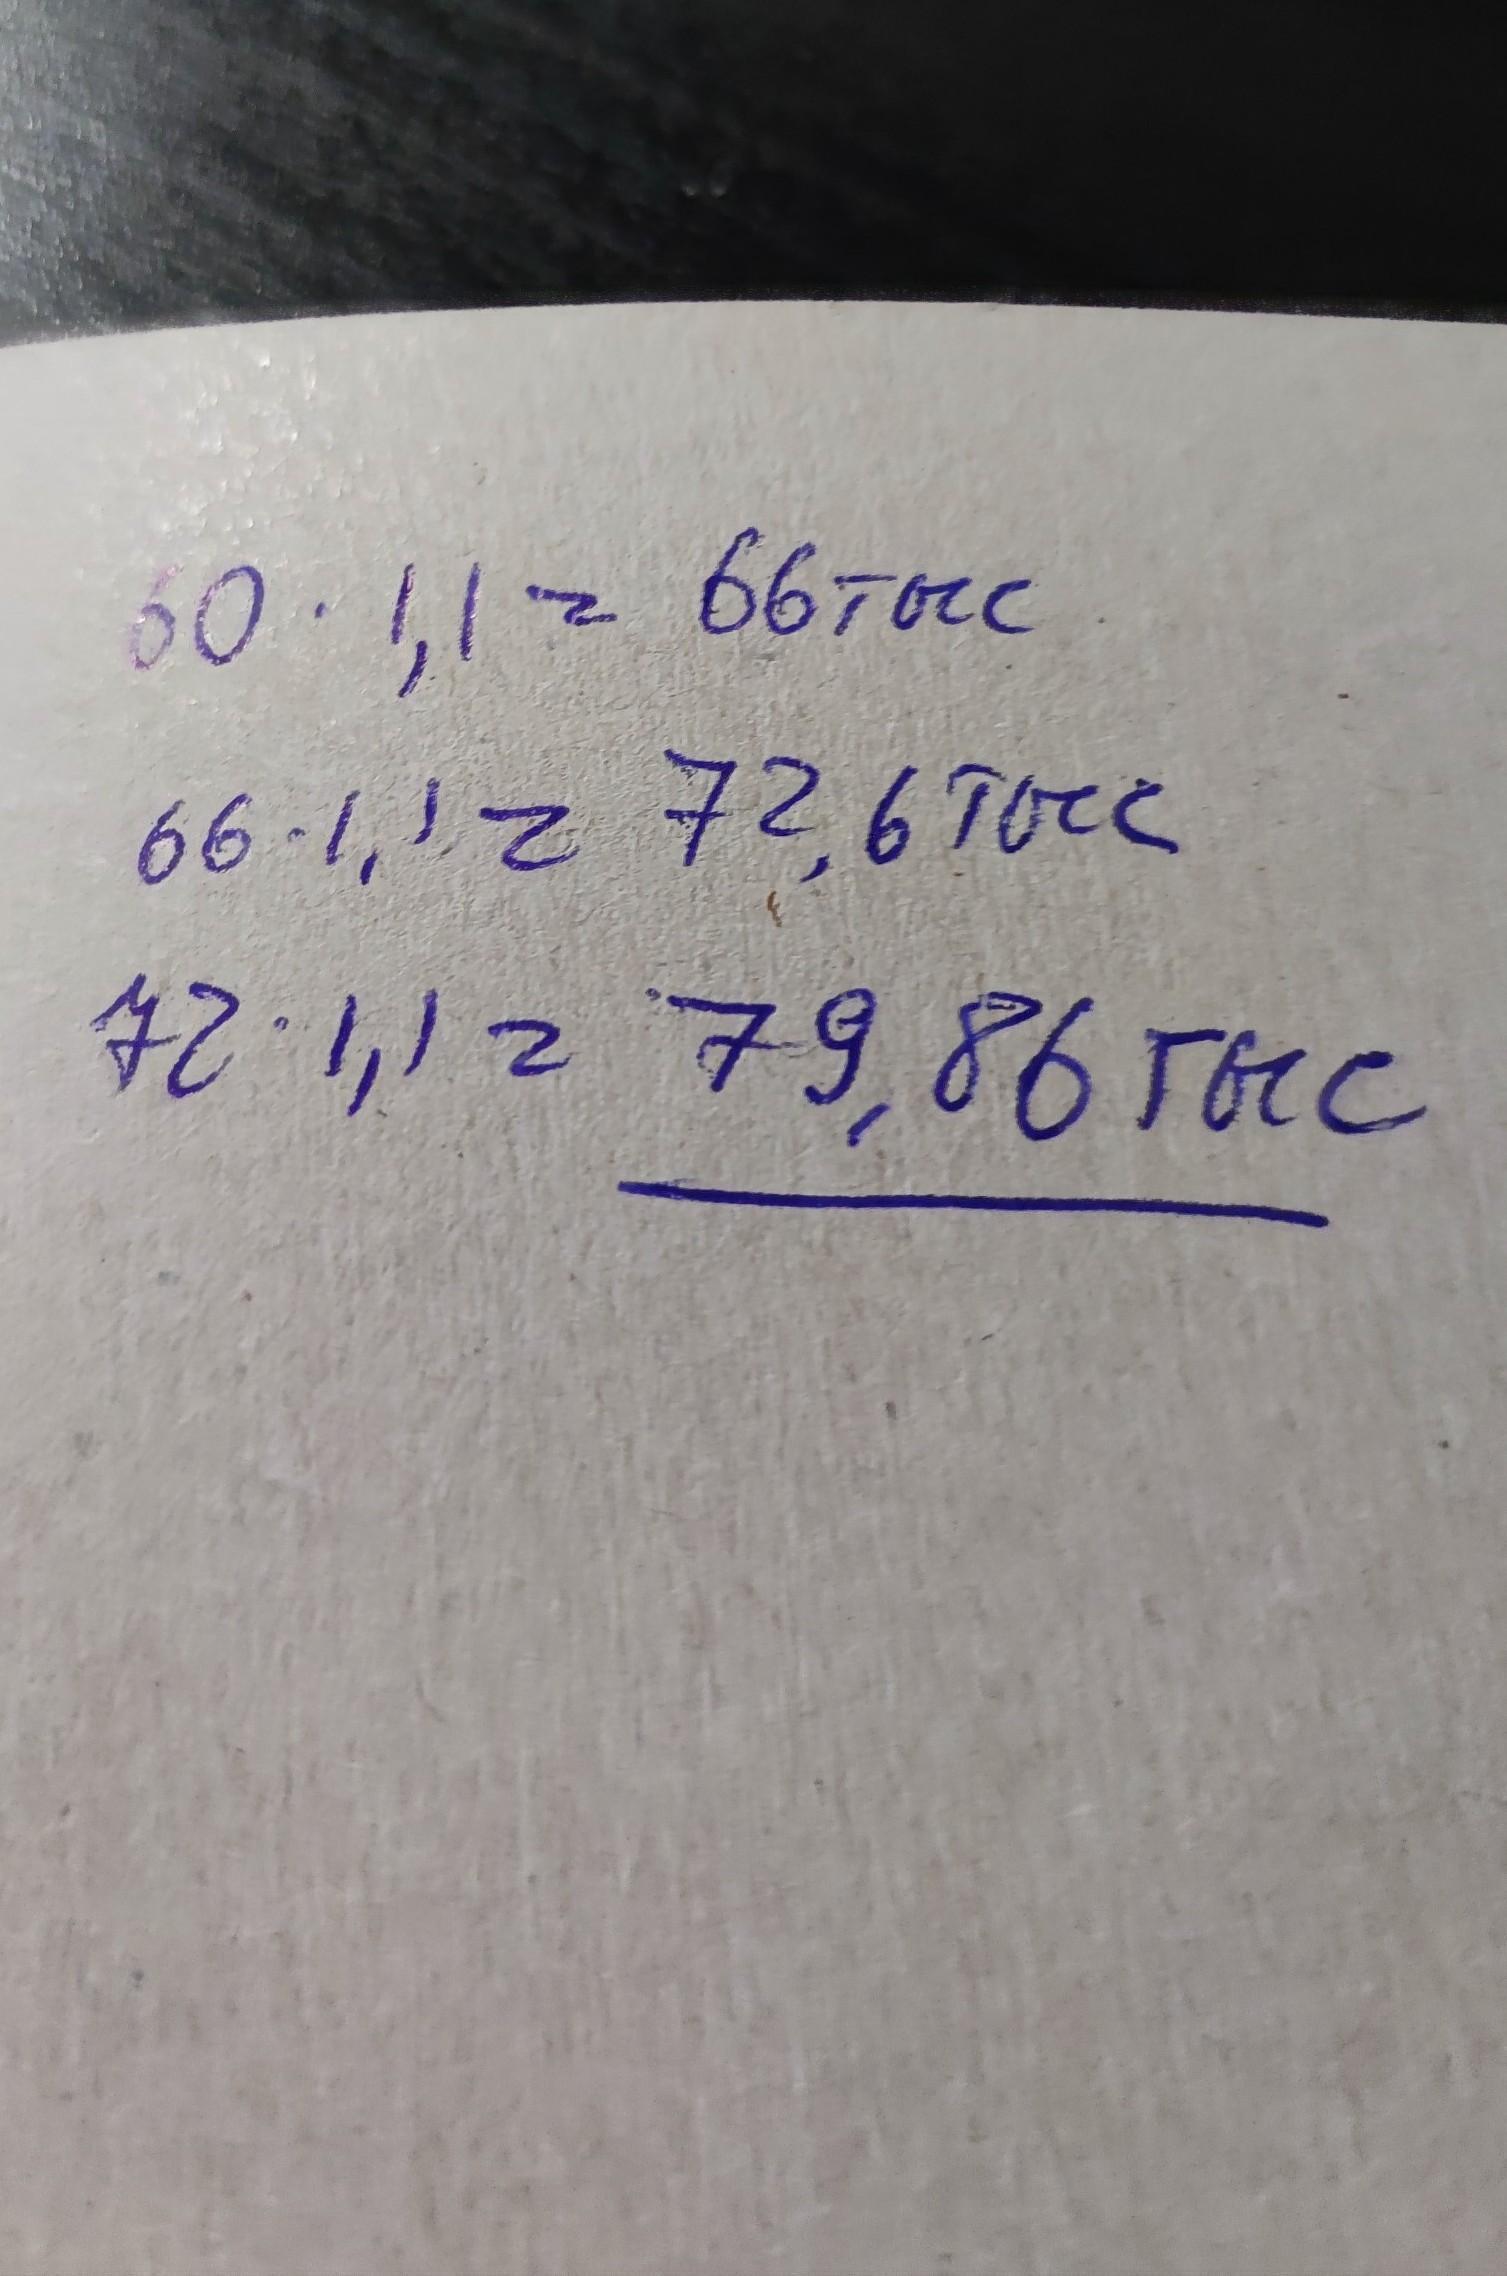 60 · 1,1 = 66 тыс
66 · 1,1 = 72,6 тыс
72 · 1,1 = 79,86 тыс